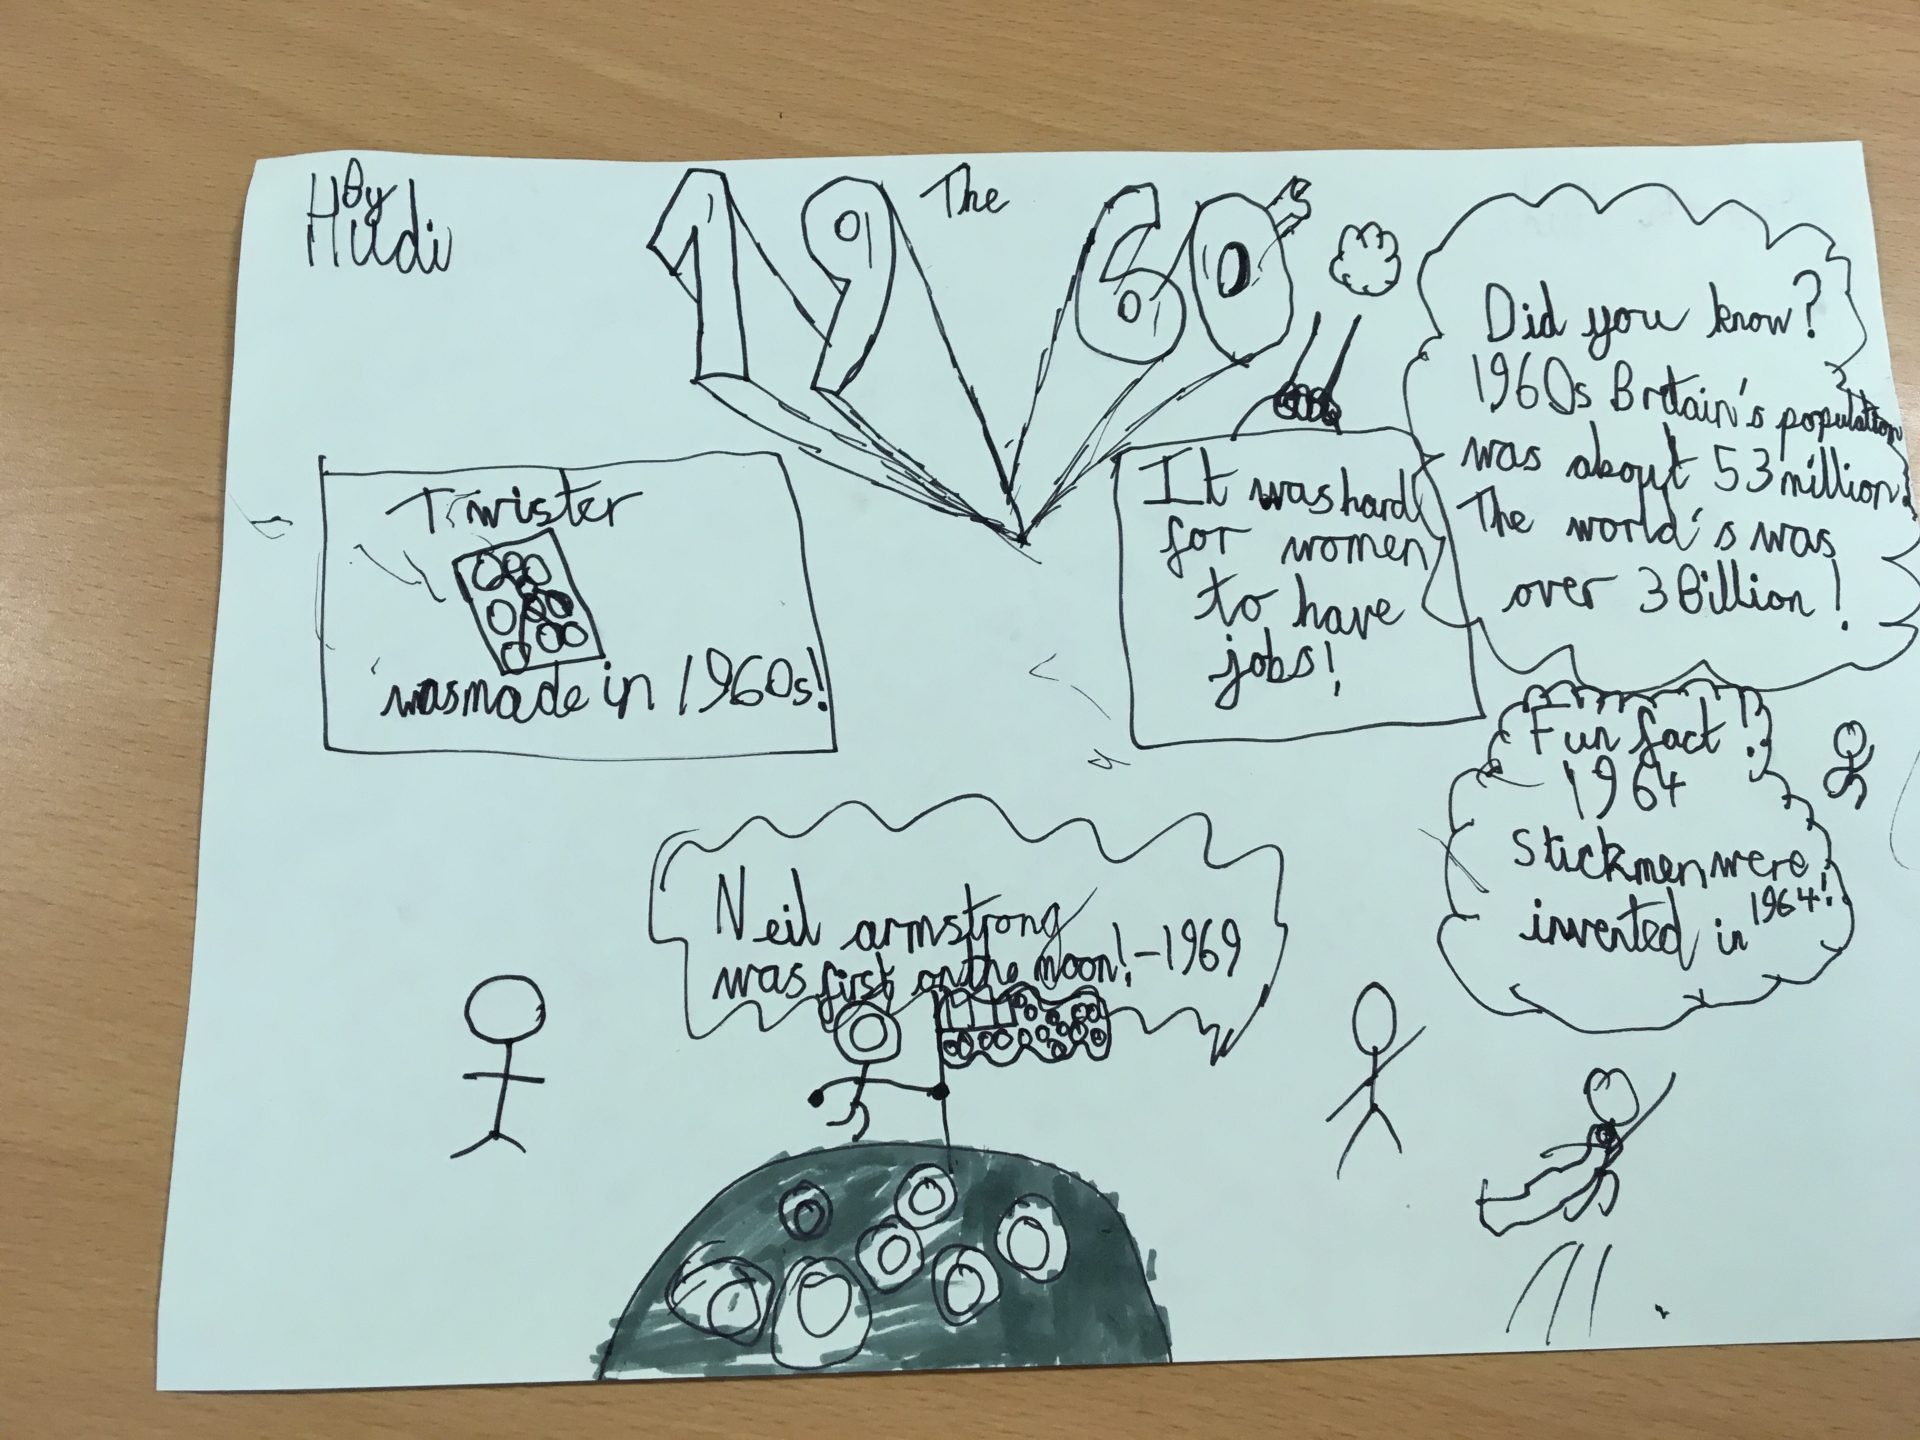 By
Hildi
The
1960s
Twister
was made in 1960s!
It was hard
for women
to have
jobs!
Did you know?
1960s Britain's population
was about 53 million.
The world's was
over 3 Billion!
Fun fact!
1964
Stickmen were
invented in 1964!
Neil armstrong
was first on the moon! - 1969